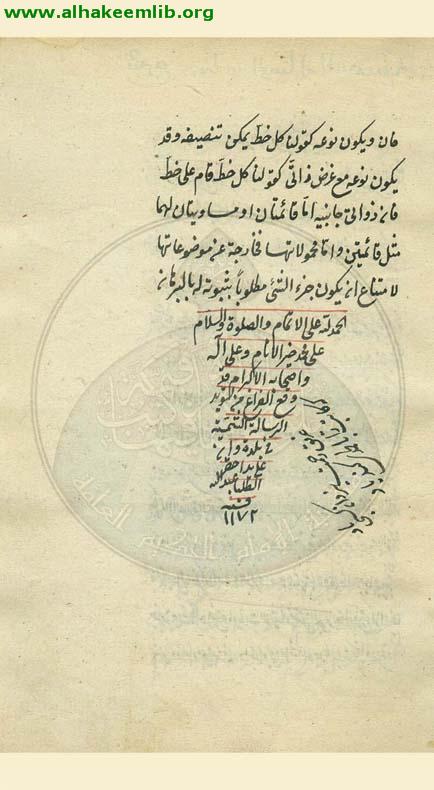 www.alhakeemlib.org
فان ويكون نوعه كقولنا كل خط يمكن تنصيفه وقد
يكون نوعه مع عرض ذاتى كقولنا كل خط قام على خط
فان زوايتى جانبيه اما قائمتان او مساويتان لهما
مثل قائمتين واما محمولاتها فخارجة عن موضوعاتها
لامتناع ان يكون جزء الشئ مطلوباً بثبوته له بالبرهان
الحمد لله على الاتمام والصلوة والسلام
على محمد خير الانام وعلى آله
واصحابه الاكرام قد
وقع الفراغ من تسويد
الرسالة الشمسية
فى بلدة وان
عن يد احقر
الطلبا عبد الله
سنه
١١٧٢